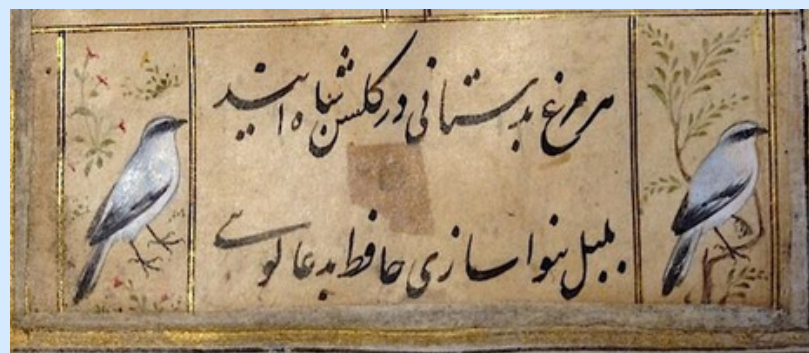 هر مرغ بدستانی در گلشن شاه آیند
بلبل بنواسازی حافظ بدعا گویی